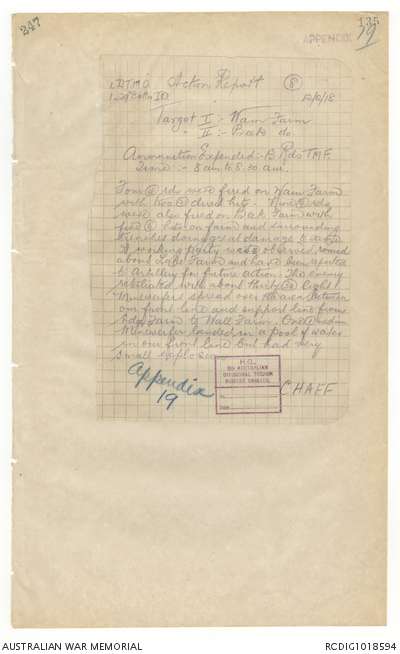 247
135
APPENDIX 19
DTMO Action Report (8)
12/2/18
Target I :- Wam Farm
" II :- Prats do
Ammunition Expended :- 13 Rds T.M.F.
Time :- 8 am to 8.30 am.
Four (4) rds were fired on Wam Farm
with two (2) direct hits. Nine (9) rds
were also fired on Farm with
hits on farm and surrounding
trenches doing great damage to same
A working party was observed round
about Farm and have been reported
to Artillery for future action. The enemy
retaliated with about thirty (30) light
Minewerfer spread over the area between
our front line and support line from
Farm to Wall Farm. One (1) medium
Minewerfer landed in a pool of water
in our front line but had very
small
H.Q.,
AUSTRALIAN
DIVISIONAL TRENCH
MORTAR
No.
Date
CHAFF
Appendix
19
AUSTRALIAN WAR MEMORIAL
RCDIG1018594